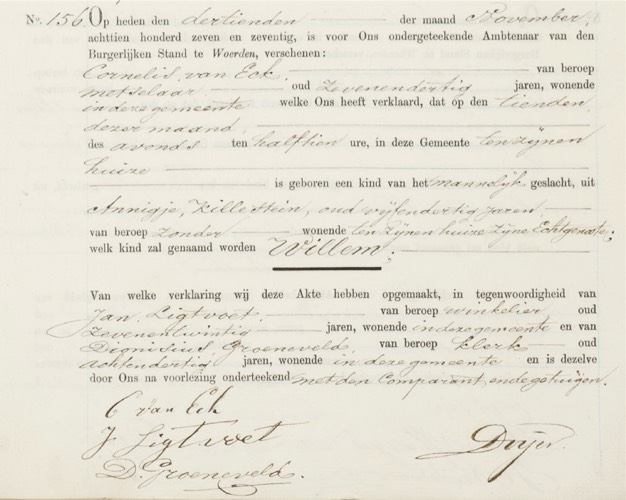 No. 156. Op heden den dertienden der maand November
achttien honderd zeven en zeventig, is voor Ons ondergeteekende Ambtenaar van den
Burgerlijken Stand te Woerden, verschenen:
Cornelis van Eck, van beroep
metselaar oud zevenendertig jaren, wonende
in deze gemeente welke Ons heeft verklaard, dat op den tienden
dezer maand,
des avonds ten halftien ure, in deze Gemeente ten zijnen
huize
is geboren een kind van het mannelijk geslacht, uit
Annigje Killestein, oud vijfendertig jaren
van beroep zonder wonende ten zijnen huize zijne Echtgenoote;
welk kind zal genaamd worden Willem;
Van welke verklaring wij deze Akte hebben opgemaakt, in tegenwoordigheid van
Jan Ligtvoet, van beroep winkelier oud
zevenentwintig jaren, wonende in deze gemeente en van
Dionisius Groeneveld, van beroep klerk oud
achtendertig jaren, wonende in deze gemeente en is dezelve
door Ons na voorlezing onderteekend met den Comparant en de getuigen.
C van Eck
J Ligtvoet
D. Groeneveld.